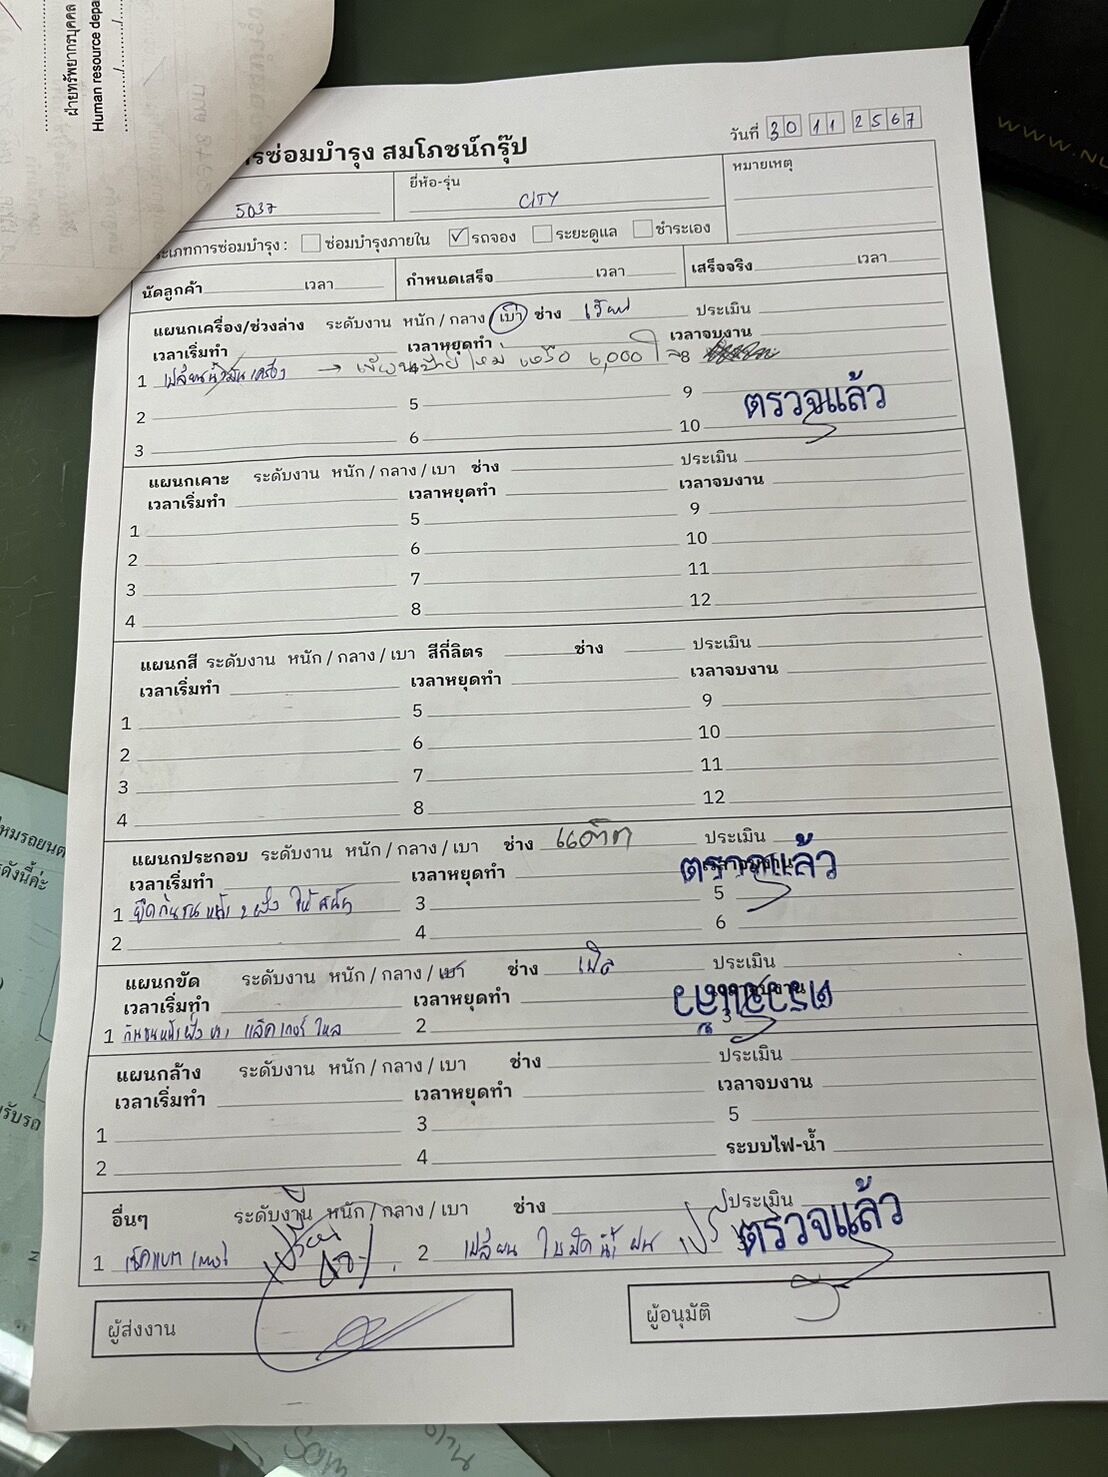 ฝ่ายทรัพยากรบุคคล
Human resource depa
รซ่อมบำรุง สมโภชน์กรุ๊ป
วันที่ 30 11 2567
5037
ยี่ห้อ-รุ่น CITY
หมายเหตุ
ระเภทการซ่อมบำรุง : ซ่อมบำรุงภายใน ✓ รถจอง ระยะดูแล ชำระเอง
นัดลูกค้า เวลา กำหนดเสร็จ เวลา เสร็จจริง เวลา
แผนกเครื่อง/ช่วงล่าง ระดับงาน หนัก / กลาง เบา ช่าง ประเมิน
เวลาเริ่มทำ เวลาหยุดทำ เวลาจบงาน
1 เปลี่ยนน้ำมันเครื่อง → ป้ายใหม่ เหลือ 6,000 โล 8
2 5 9 ตรวจแล้ว
3 6 10
แผนกเคาะ ระดับงาน หนัก / กลาง / เบา ช่าง ประเมิน
เวลาเริ่มทำ เวลาหยุดทำ เวลาจบงาน
1 5 9
2 6 10
3 7 11
4 8 12
แผนกสี ระดับงาน หนัก / กลาง / เบา สีกี่ลิตร ช่าง ประเมิน
เวลาเริ่มทำ เวลาหยุดทำ เวลาจบงาน
1 5 9
2 6 10
3 7 11
4 8 12
แผนกประกอบ ระดับงาน หนัก / กลาง / เบา ช่าง ประเมิน
เวลาเริ่มทำ เวลาหยุดทำ เวลาจบงาน ตรวจแล้ว
1 ยึดกันชนหน้า 2 ฝั่ง ให้สนิท 3 5
2 4 6
แผนกขัด ระดับงาน หนัก / กลาง / เบา ช่าง ประเมิน
เวลาเริ่มทำ เวลาหยุดทำ เวลาจบงาน ตรวจแล้ว
1 กันชนหน้าฝั่งขวา แล็คเกอร์ไหล 2 3
แผนกล้าง ระดับงาน หนัก / กลาง / เบา ช่าง ประเมิน
เวลาเริ่มทำ เวลาหยุดทำ เวลาจบงาน
1 3 5
2 4 ระบบไฟ-น้ำ
อื่นๆ ระดับงาน หนัก / กลาง / เบา ช่าง ประเมิน
1 เช็คแบตเตอรี่ 2 เปลี่ยน ใบปัดน้ำฝน ตรวจแล้ว
ผู้ส่งงาน ผู้อนุมัติ